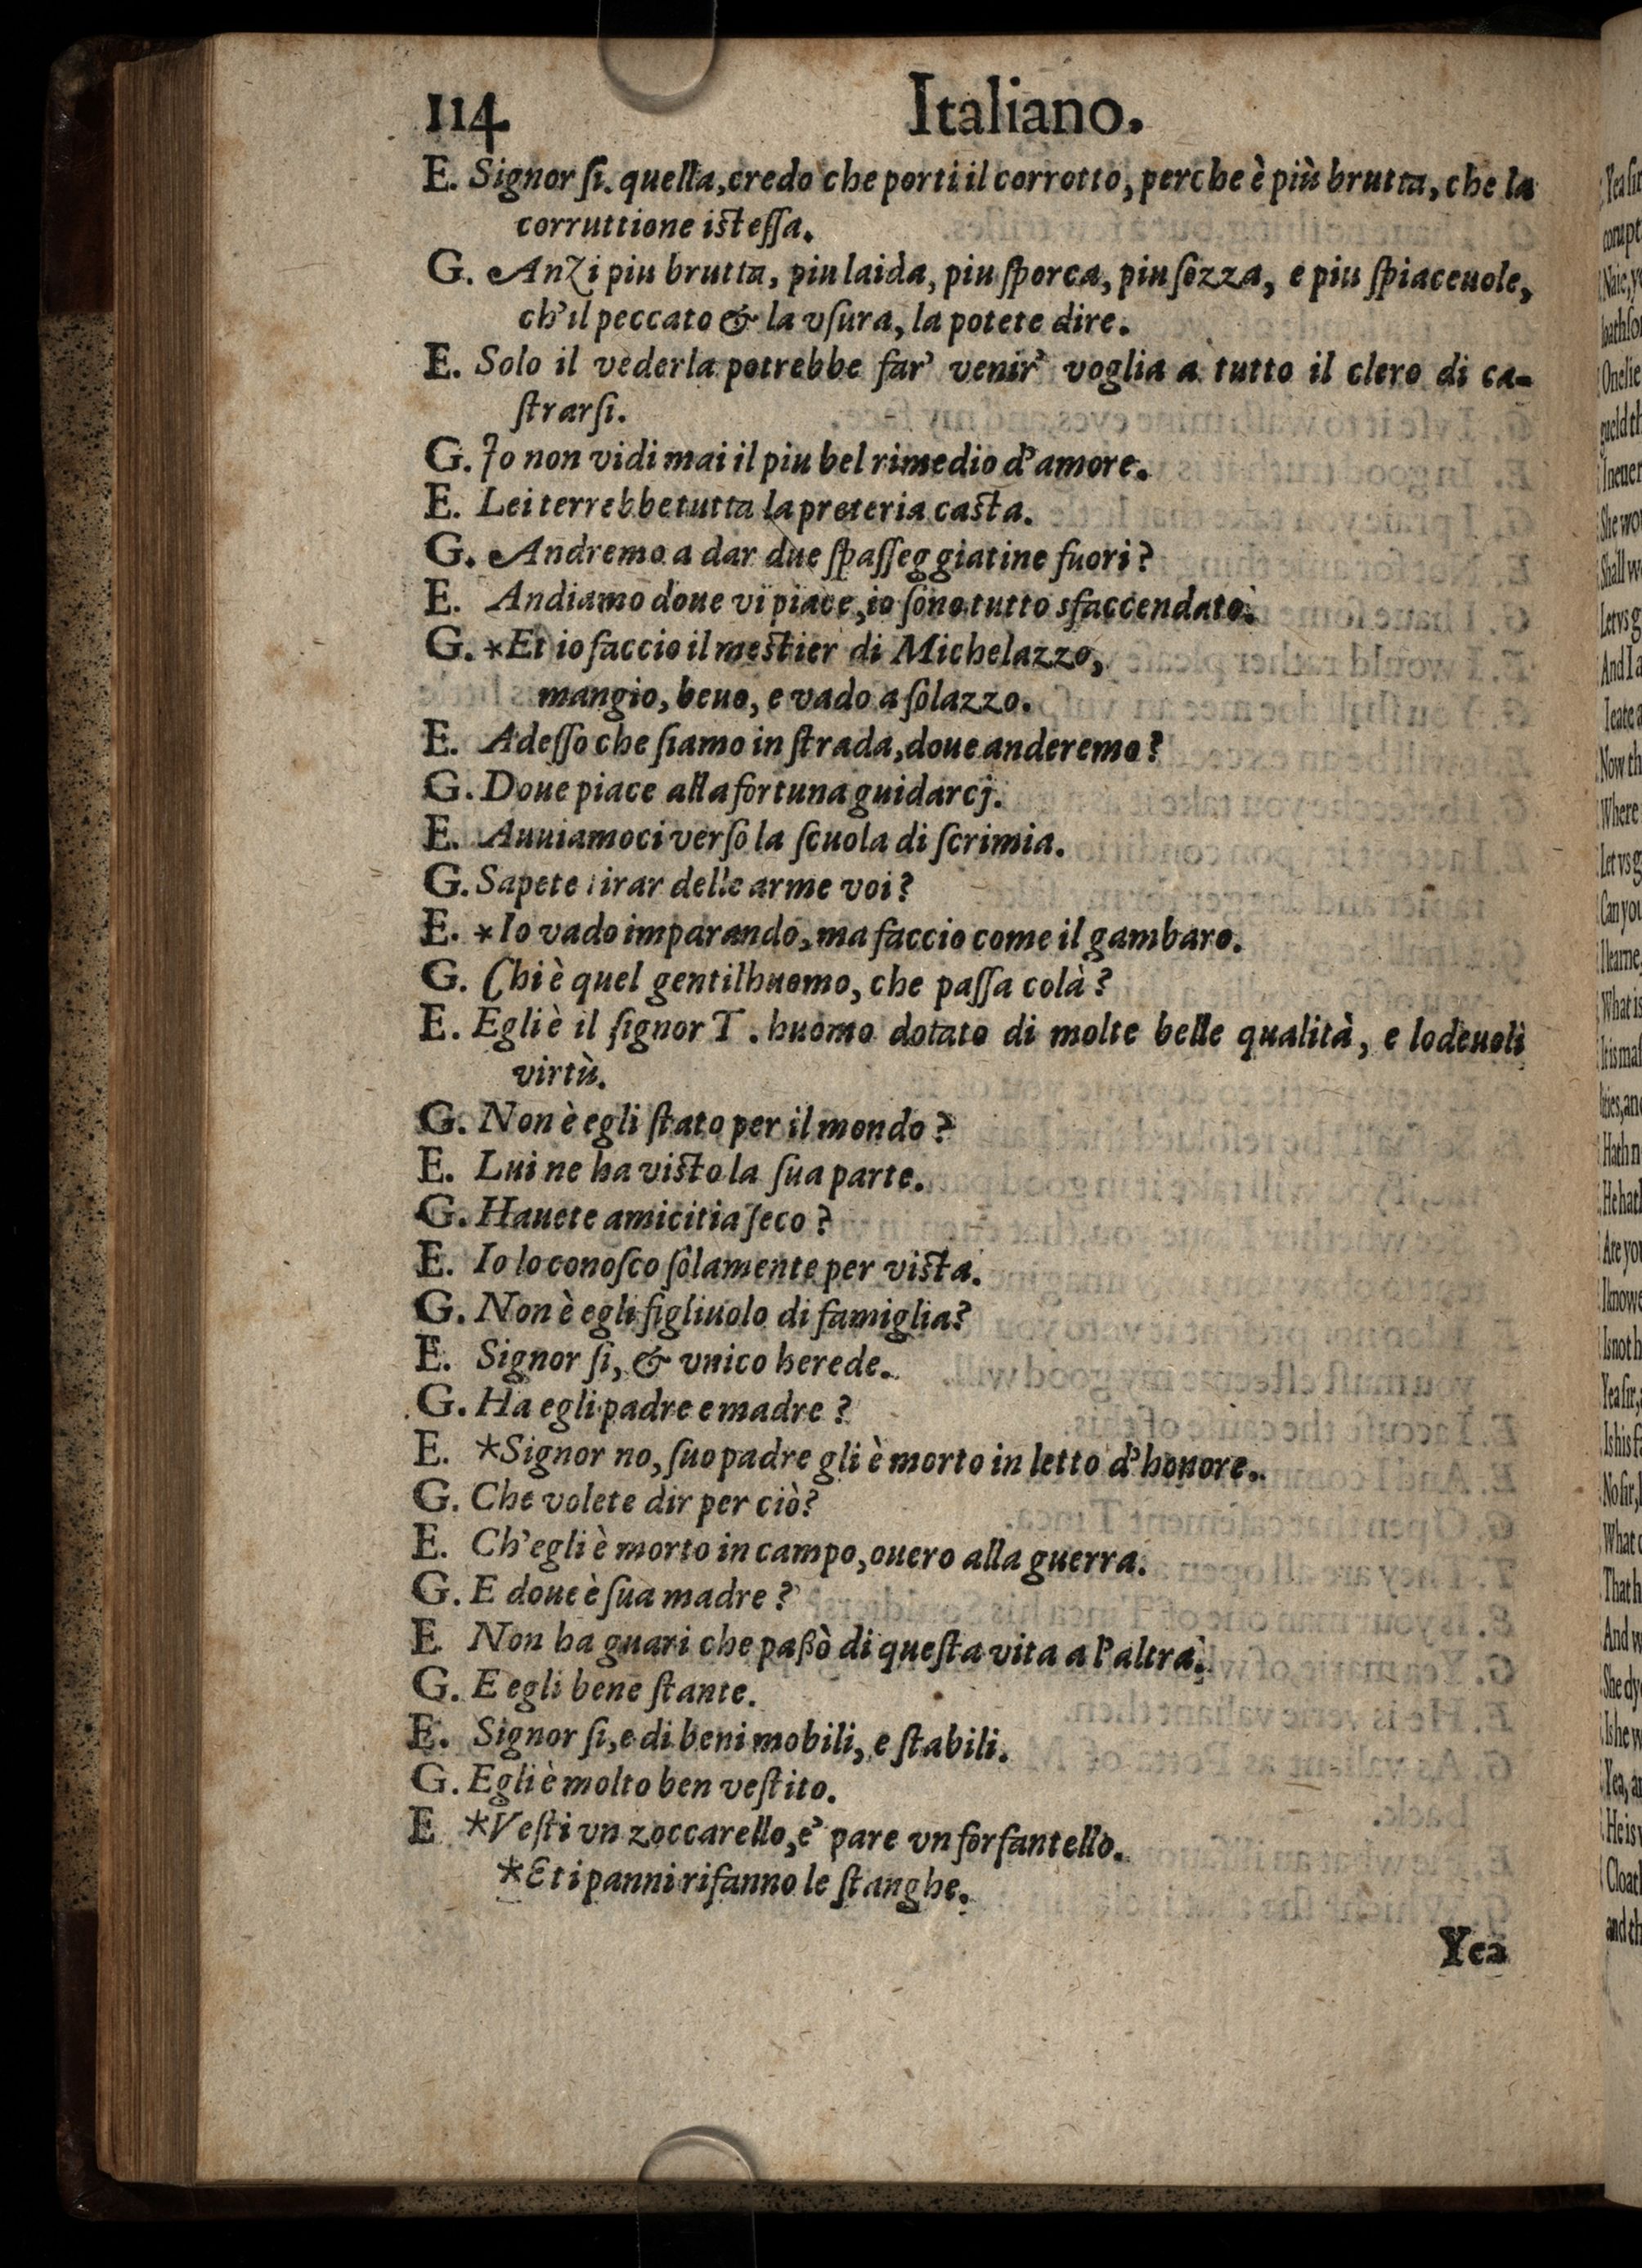 114 Italiano.
E. Signor ſi. quella, credo che porti il corrotto, perche è più brutta, che la
corruttione iſteſſa.
G. Anzi piu brutta, piu laida, piu ſporca, piu ſozza, e piu ſpiaceuole,
ch'il peccato & la vſura, la potete dire.
E. Solo il vederla potrebbe far' venir' voglia a tutto il clero di ca-
ſtrarſi.
G. Io non vidi mai il piu bel rimedio d'amore.
E. Lei terrebbe tutta la preteria caſta.
G. Andremo a dar due ſpaſſeggiatine fuori?
E. Andiamo doue vi piace, io ſono tutto sfaccendato.
G. *Et io faccio il meſtier di Michelazzo,
mangio, beuo, e vado a ſolazzo.
E. Adeſſo che ſiamo in ſtrada, doue anderemo?
G. Doue piace alla fortuna guidarcj.
E. Auuiamoci verſo la ſcuola di ſcrimia.
G. Sapete tirar delle arme voi?
E. *Io vado imparando, ma faccio come il gambaro.
G. Chi è quel gentilhuomo, che paſſa colà?
E. Egli è il ſignor T. huomo dotato di molte belle qualità, e lodeuoli
virtù.
G. Non è egli ſtato per il mondo?
E. Lui ne ha viſto la ſua parte.
G. Hauete amicitia ſeco?
E. Io lo conoſco ſolamente per viſta.
G. Non è egli figliuolo di famiglia?
E. Signor ſi, & vnico herede.
G. Ha egli padre e madre?
E. *Signor no, ſuo padre gli è morto in letto d'honore.
G. Che volete dir per ciò?
E. Ch'egli è morto in campo, ouero alla guerra.
G. E doue è ſua madre?
E Non ha guari che paßò di queſta vita a l'altra.
G. E egli bene ſtante.
E. Signor ſi, e di beni mobili, e ſtabili.
G. Egli è molto ben veſtito.
E *Veſti vn zoccarello, e' pare vn forfantello.
*Et i panni rifanno le ſtanghe.
Yea